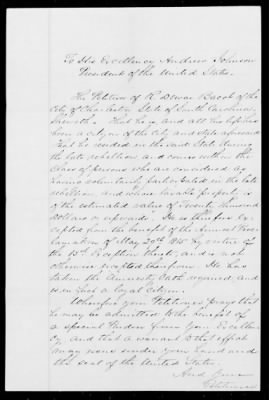 To His Excellency Andrew Johnson
President of the United States.
The Petition of R. Dewar Bacot of the
City of Charleston State of South Carolina,
Sheweth, That he is and all his life has
been a citizen of the City and State aforesaid
that he resided in the said State during
the late rebellion and comes within the
Class of persons who are considered as
having voluntarily participated in the late
rebellion and whose taxable property is
of the estimated value of Twenty thousand
dollars or upwards. He is therefore ex-
cepted from the benefit of the Amnesty Proc-
lamation of May 29th 1865 by virtue of
the 13th Exception thereof, and is not
otherwise excepted therefrom. He has
taken the Amnesty Oath required, and
is a loyal citizen.
Wherefore your Petitioner prays that
he may be admitted to the benefit of
a special Pardon from your Excellen-
cy and that a warrant to that effect
may issue under your hand and
the seal of the United States.
And your
Petitioner